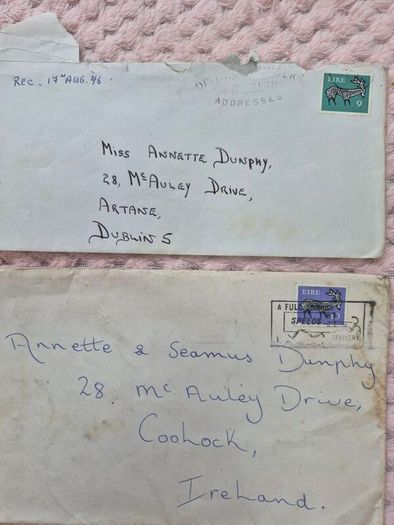 Rec. 17TH AUG. 76
ADDRESSES
EIRE
9
Miss Annette Dunphy,
28, McAuley Drive,
Artane,
Dublin 5
EIRE
A FULL
SPEEDS
DELIVERY
Annette & Seamus Dunphy
28. Mc Auley Drive,
Coolock,
Ireland.